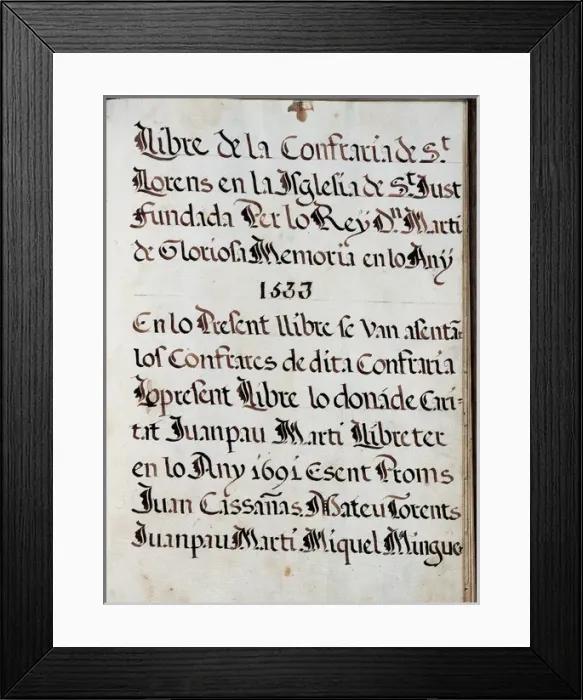 Llibre de la Confraria de S.t
Llorens en la Isglesia de S.t Just
Fundada Per lo Rey D.n Marti
de Gloriosa Memoria en lo Any
1533
En lo Present llibre se van asentā:
los Confrares de dita Confraria
Lo present Llibre lo doná de Cari-
tat Juanpau Marti Llibreter
en lo Any 1691 Esent Proms
Juan Cassañas. Mateu Torents
Juanpau Marti Miquel Mingue